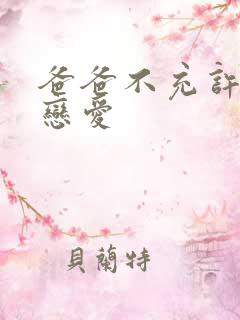 爸爸不充許
戀愛
貝蘭特